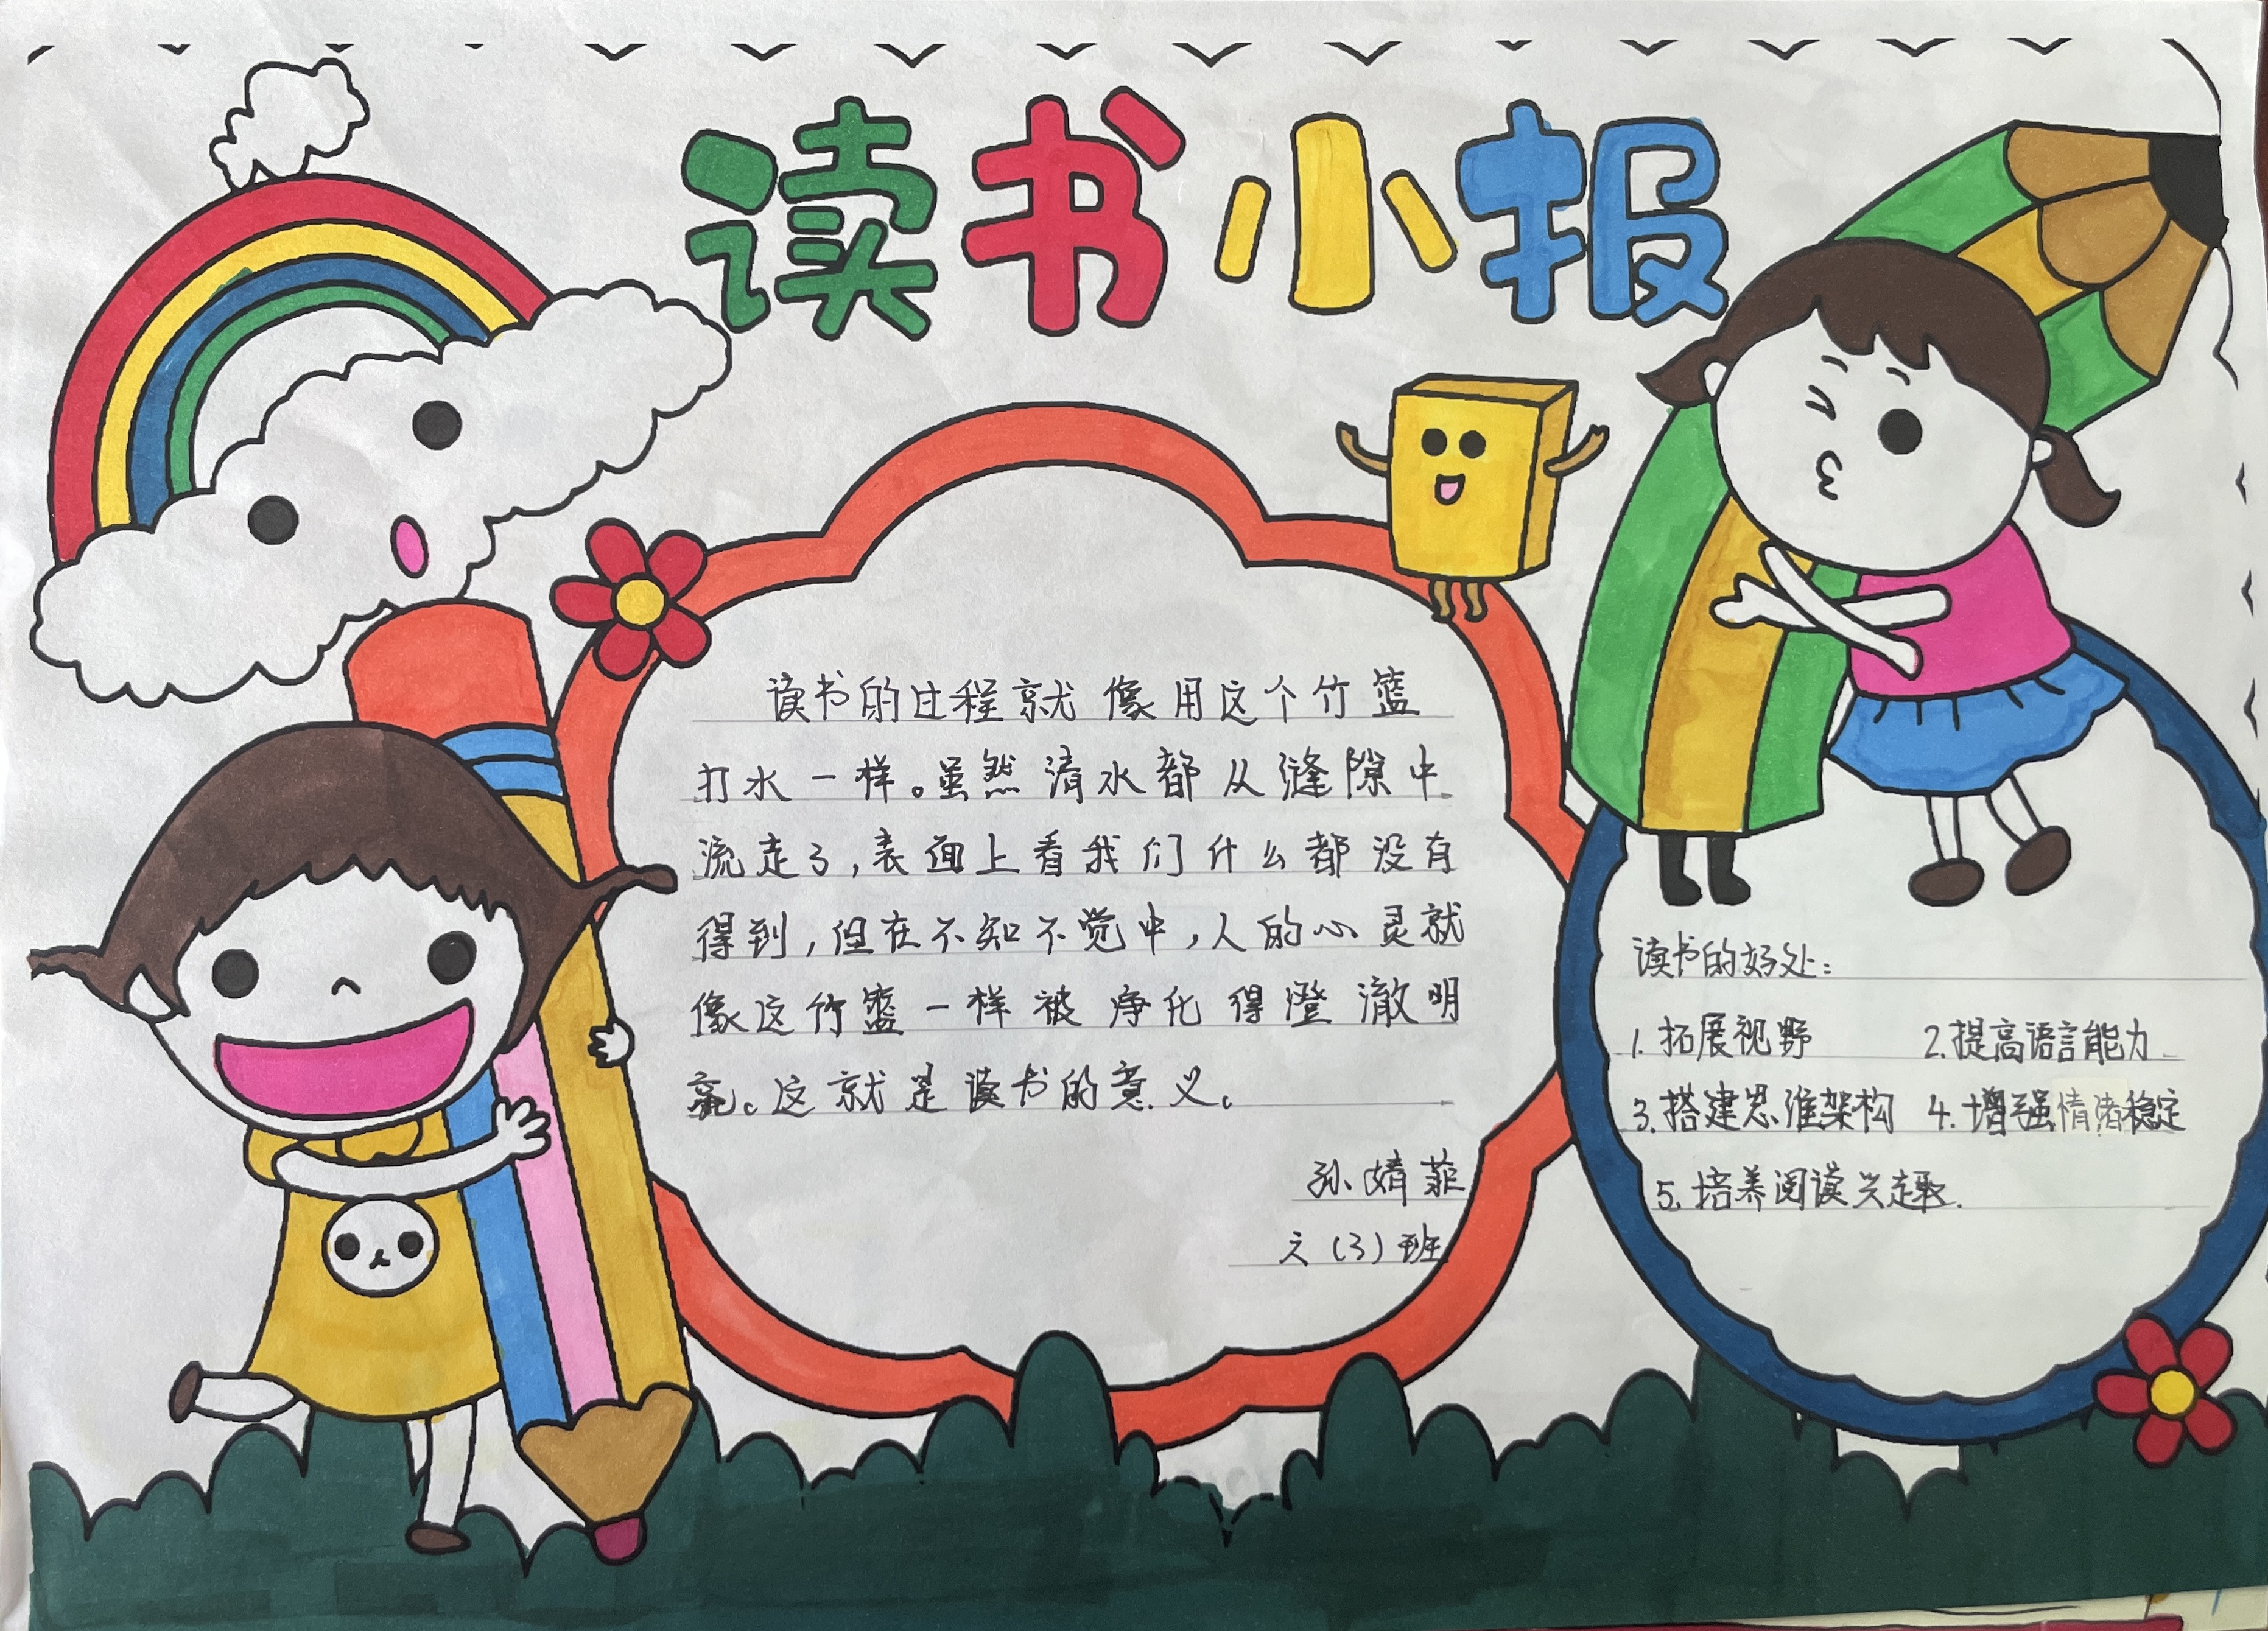 读书小报
读书的过程就像用这个竹篮
打水一样。虽然清水都从缝隙中
流走了,表面上看我们什么都没有
得到,但在不知不觉中,人的心灵就
像这竹篮一样被净化得澄澈明
亮。这就是读书的意义。
孙婧菲
六(3)班
读书的好处:
1.拓展视野 2.提高语言能力
3.搭建思维架构 4.增强情绪稳定
5.培养阅读兴趣.